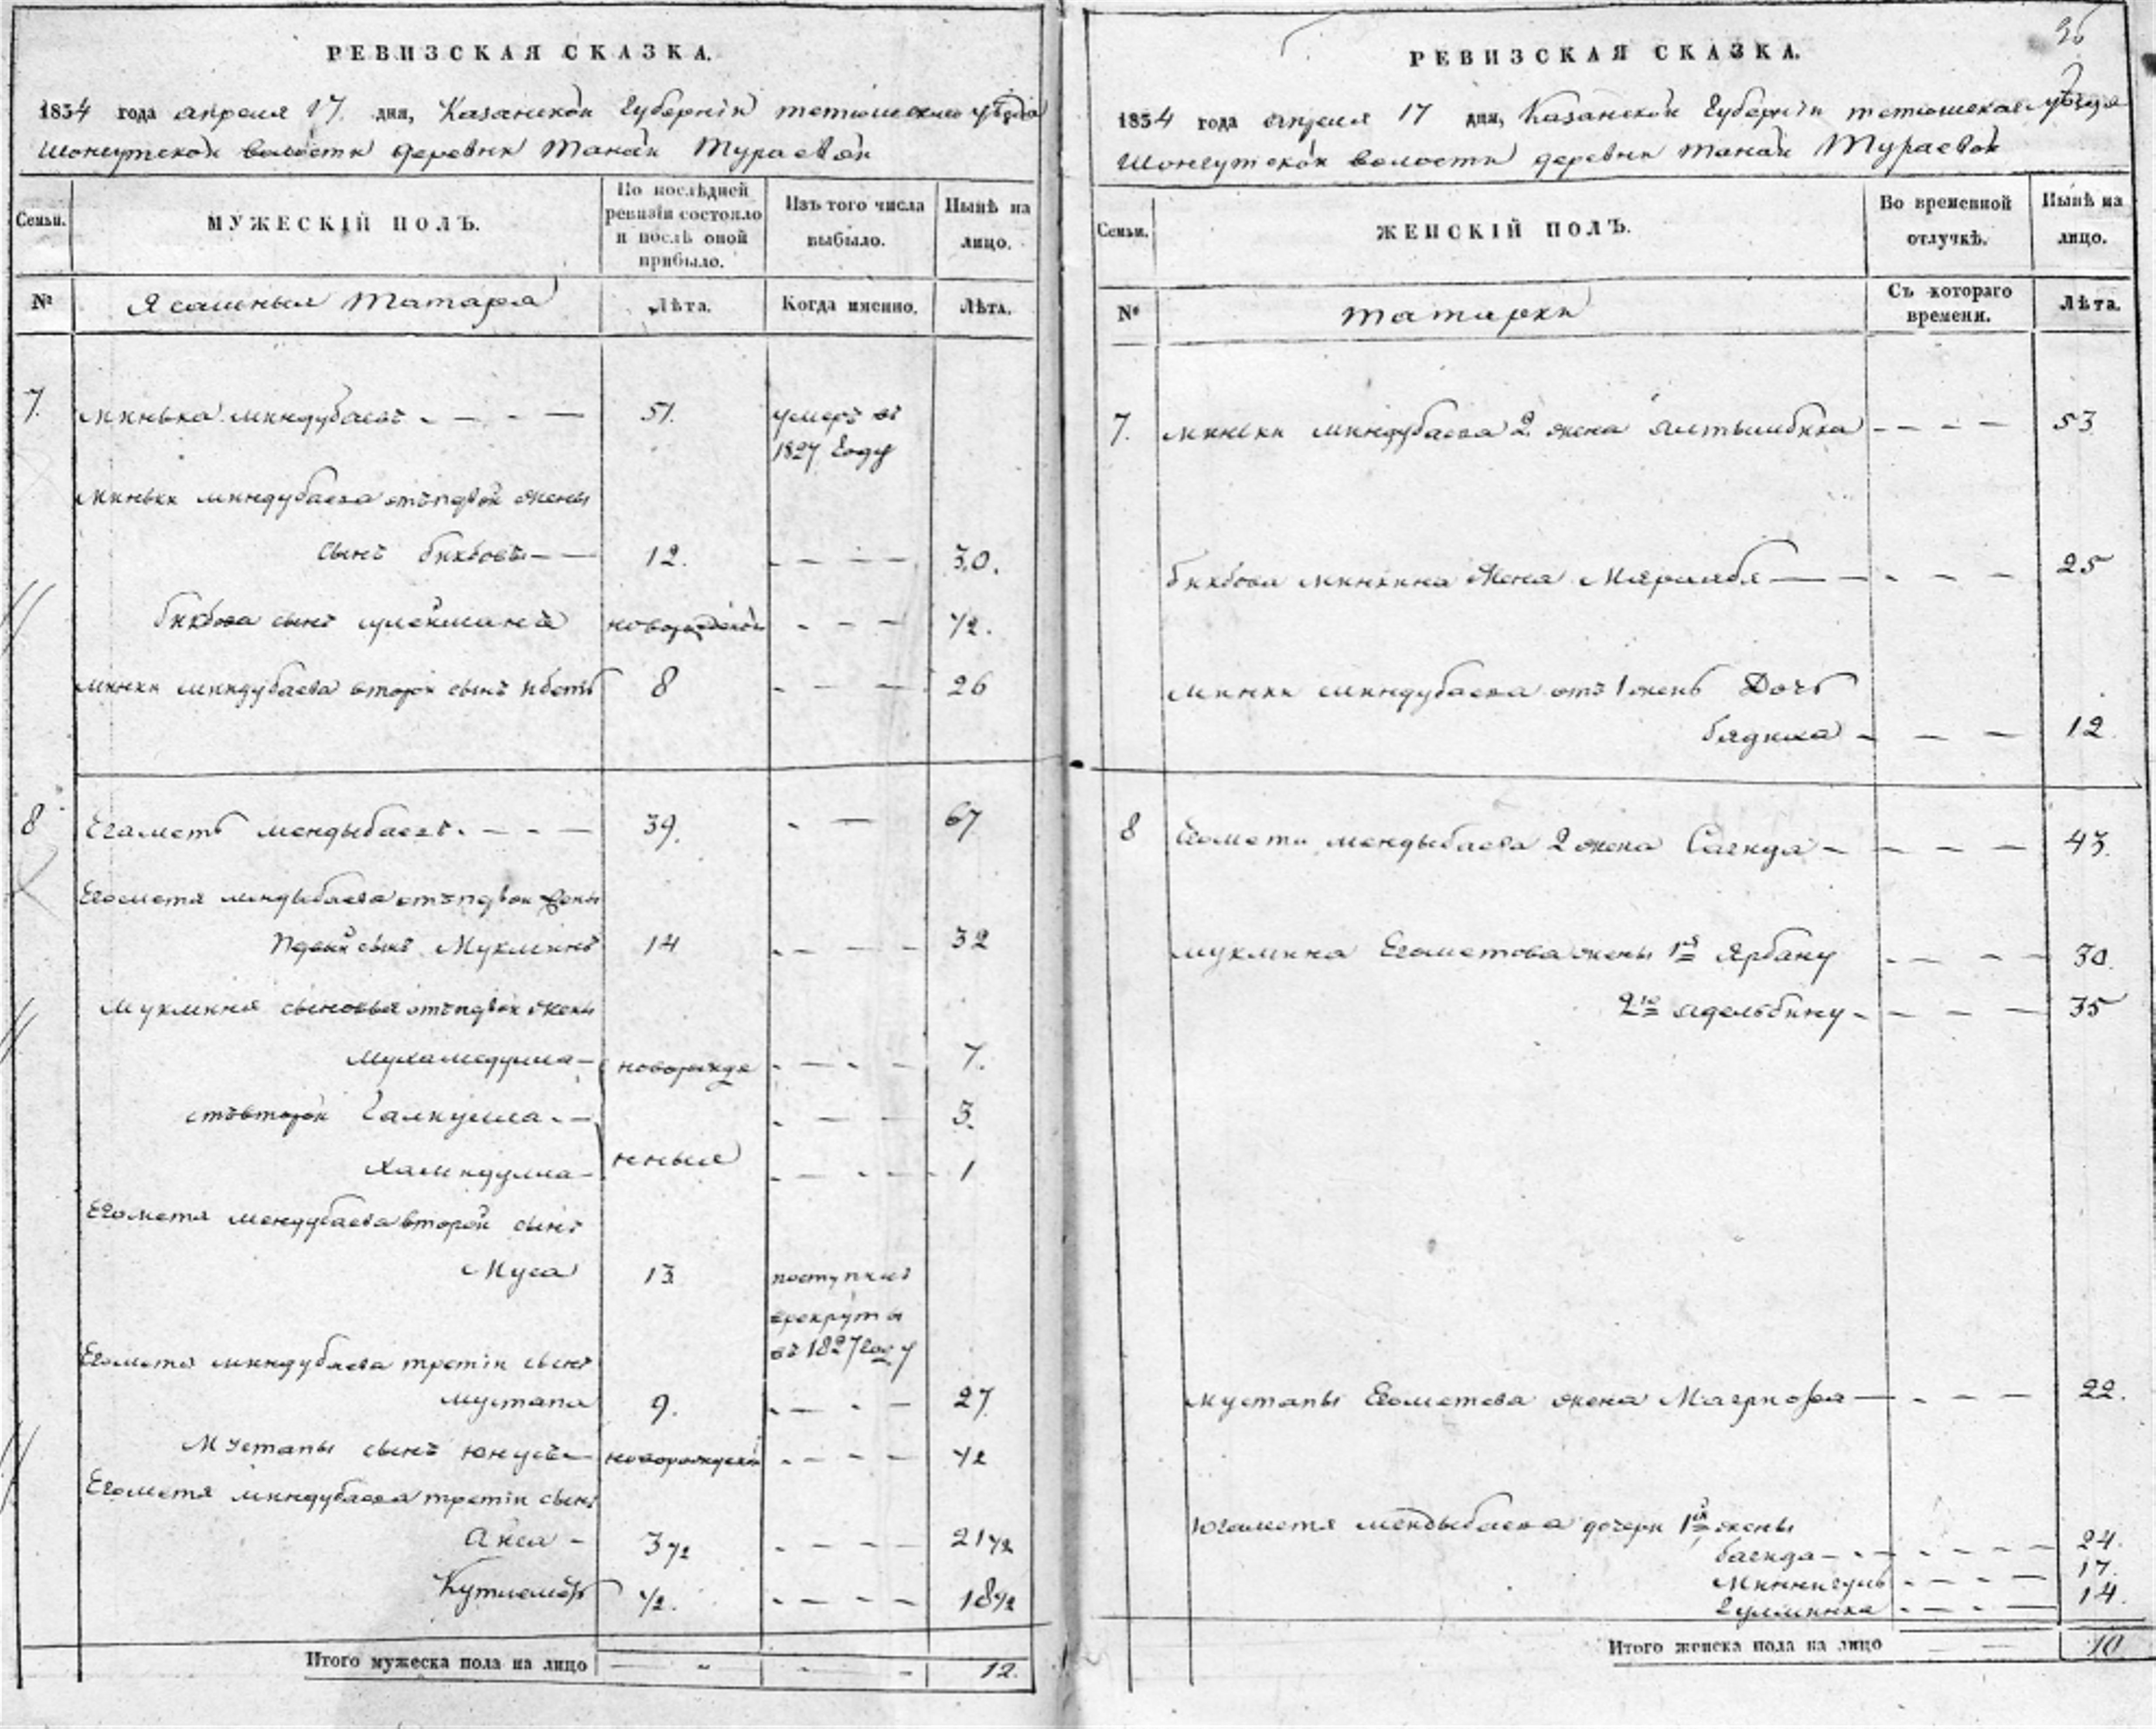 РЕВИЗСКАЯ СКАЗКА.
1834 года апреля 17 дня, Казанской Губернiи тетюшскаго уѣзда
Шонгутской волости деревни Танай Тураевой
Семьи.
МУЖЕСКIЙ ПОЛЪ.
По послѣдней ревизiи состояло и послѣ оной прибыло.
Изъ того числа выбыло.
Нынѣ на лицо.
№
Ясашныя Татара
Лѣта.
Когда именно.
Лѣта.
7. Минька миндубаевъ 51. умеръ въ
1827 Году
Миньки миндубаева отъ первой жены
сынъ бикбовъ 12. 30.
бикбова сынъ новорожденой 1/2.
миньки миндубаева второй сынъ ибеть 8 26
8 Егаметь мендыбаевъ 39. 67
Егометя мендыбаева отъ первой жены
первый сынъ Мукминъ 14 32
Мукминя сыновья отъ первой жены
Мухамедулла 7.
новорожде
отъ второй Галиулла 3.
Хамидулла нныя 1
Егометя мендубаева второй сынъ
Муса 13 поступилъ
врекруты
въ 1827 году
Егометя миндубаева третiи сынъ
мустапа 9. 27
Мустапы сынъ юнусъ новорожденой 1/2
Егометя миндубаева третiи сынъ
Аиса 3 1/2 21 1/2
1/2. 18 1/2
Итого мужеска пола на лицо 12.
26
РЕВИЗСКАЯ СКАЗКА.
1834 года апреля 17 дня, Казанской Губернiи тетюшскаго уѣзда
Шонгутской волости деревни Танай Тураевой
Семьи.
ЖЕНСКIЙ ПОЛЪ.
Во временной отлучкѣ.
Нынѣ на лицо.
№
татарки
Съ котораго времени.
Лѣта.
7. миньки миндубаева 2 жена Ялтышбика 53
бикбова минкина жена 25
миньки миндубаева отъ 1 жены Дочь
бадика 12
8 Егомети мендыбаева 2 жена Сагида 43.
мукмина Егометова жены 1я Ярбану 30.
2я Адельбину 35
мустапы Егометева жена 22.
Югаметя мендыбаева дочери 1й жены
багида 24.
Миннигуль 17.
Гулминка 14.
Итого женска пола на лицо 10